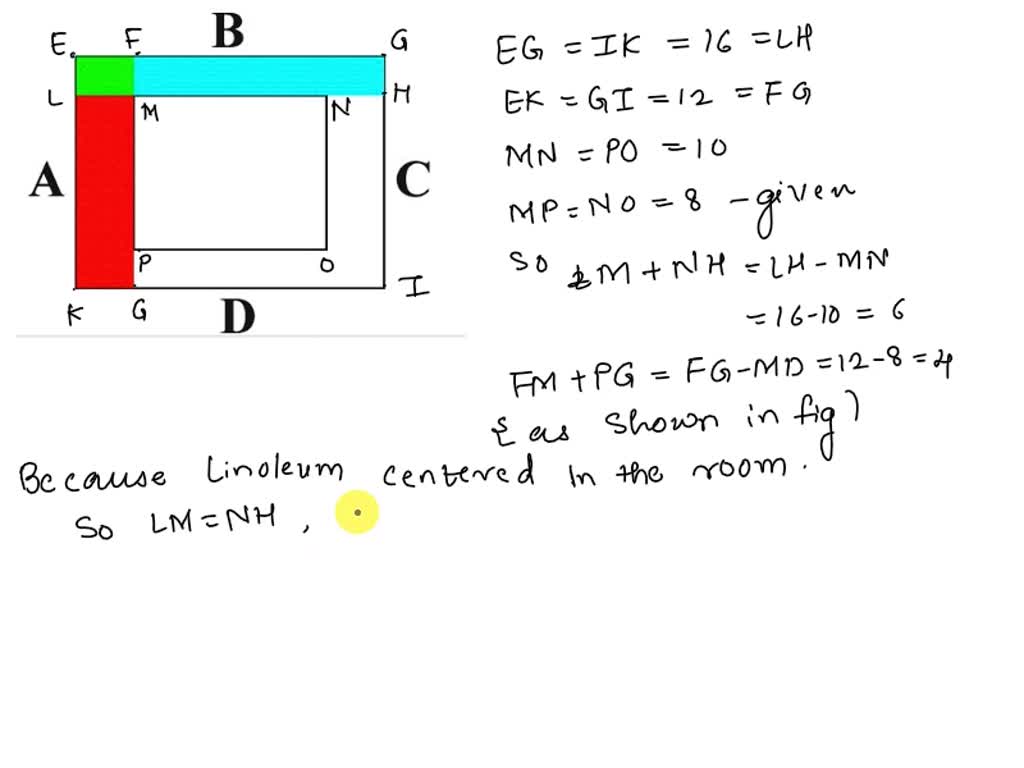 E. F. B G
L M N H
A C
P O I
K G D
EG = IK = 16 = LH
EK = GI = 12 = FG
MN = PO = 10
MP = NO = 8 - given
So LM + NH = LH - MN
= 16-10 = 6
FM + PG = FG-MD = 12-8 = 4
{ as shown in fig)
Because Linoleum centered In the room.
So LM = NH ,